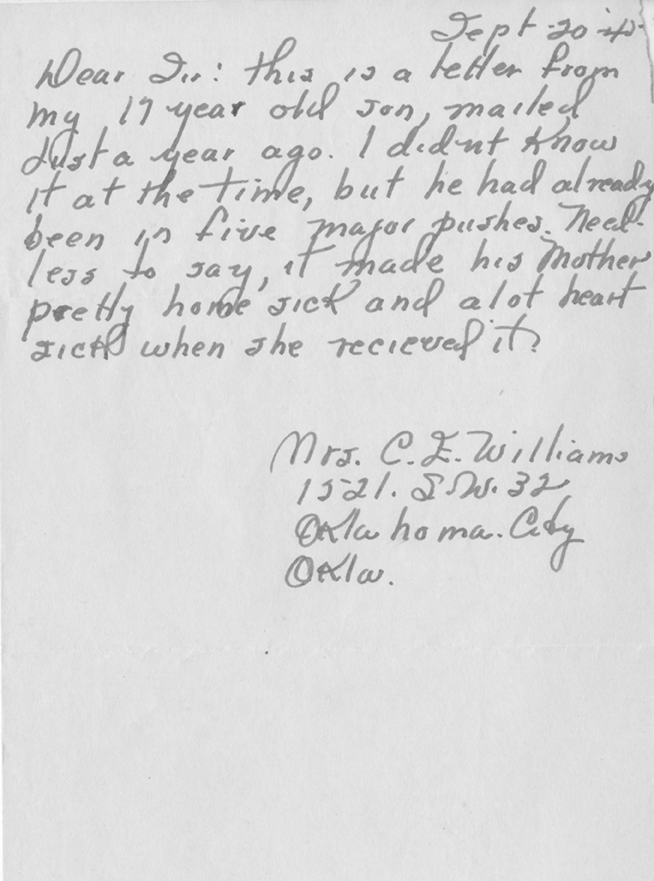 Sept 20 -4
Dear Sir: this is a letter from
my 17 year old son, mailed
Just a year ago. I didnt Know
it at the time, but he had already
been in five major pushes. Need-
less to say, it made his Mother
pretty home sick and alot heart
sick when she recieved it.
Mrs. C. E. Williams
1521. S.W. 32
Oklahoma. City
Okla.